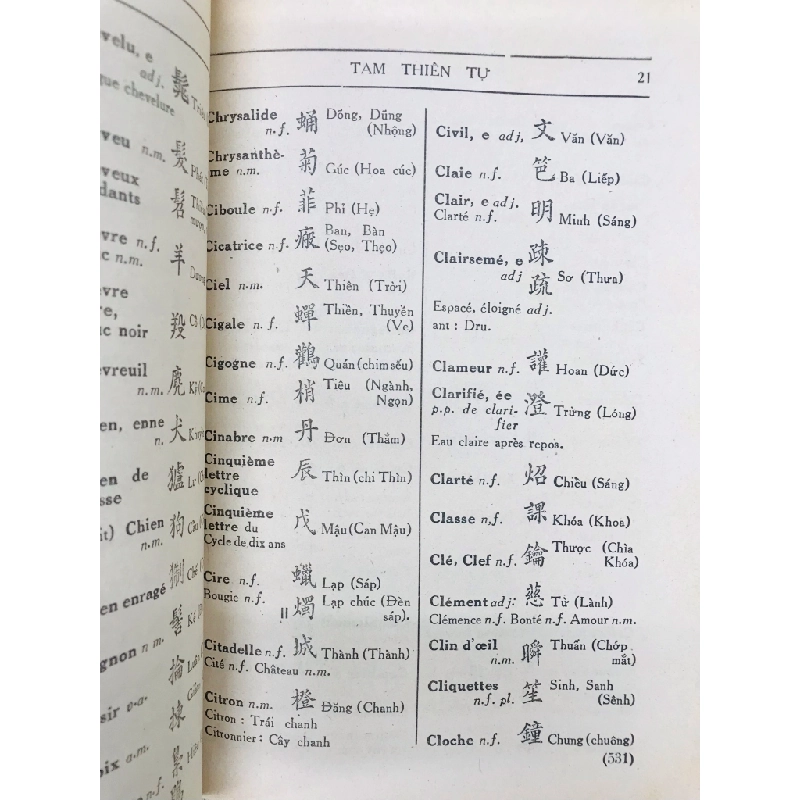 velu, e
adj. 髦
que chevelure
veu n.m. 髮
veux
dants 髫
vre n.f.
c n.m. 羊
vre
re,
c noir 羖
vreuil
n.m. 麂
en, enne
n. 犬
en de
sse 獹
it) Chien
n.m. 狗
en enragé 猘
gnon n.m. 髻
TAM THIÊN TỰ
21
Chrysalide
n.f. 蛹 Dõng, Dũng
(Nhộng)
Chrysanthè-
me n.m. 菊 Cúc (Hoa cúc)
Ciboule n.f. 菲 Phỉ (Hẹ)
Cicatrice n.f. 瘢 Ban, Bàn
(Sẹo, Thẹo)
Ciel n.m. 天 Thiên (Trời)
Cigale n.f. 蟬 Thiền, Thuyền
(Ve)
Cigogne n.f. 鸛 Quán (chim sếu)
Cime n.f. 梢 Tiêu (Ngành,
Ngọn)
Cinabre n.m 丹 Đơn (Thắm)
Cinquième
lettre
cyclique 辰 Thìn (chi Thìn)
Cinquième
lettre du
Cycle de dix ans 戊 Mậu (Can Mậu)
Cire n.f. 蠟 Lạp (Sáp)
Bougie n.f. 〃 燭 Lạp chúc (Đèn
sáp).
Citadelle n.f. 城 Thành (Thành)
Cité n.f. Château n.m.
Citron n.m. 橙 Đăng (Chanh)
Citron : Trái chanh
Citronnier : Cây chanh
Civil, e adj, 文 Văn (Văn)
Claie n.f. 笆 Ba (Liếp)
Clair, e adj.
Clarté n.f. 明 Minh (Sáng)
Clairsemé, e
adj 疎 疏 Sơ (Thưa)
Espacé, éloigné adj.
ant : Dru.
Clameur n.f. 讙 Hoan (Dức)
Clarifié, ée
p.p. de clari-
fier 澄 Trừng (Lóng)
Eau claire après repos.
Clarté n.f. 炤 Chiếu (Sáng)
Classe n,f. 課 Khóa (Khoa)
Clé, Clef n.f. 鑰 Thược (Chìa
Khóa)
Clément adj: 慈 Từ (Lành)
Clémence n.f. Bonté n.f. Amour n.m.
Clin d'œil
n.m. 瞬 Thuấn (Chớp
mắt)
Cliquettes
n.f. pl. 笙 Sinh, Sanh
(Sênh)
Cloche n.f. 鐘 Chung (chuông)
(531)